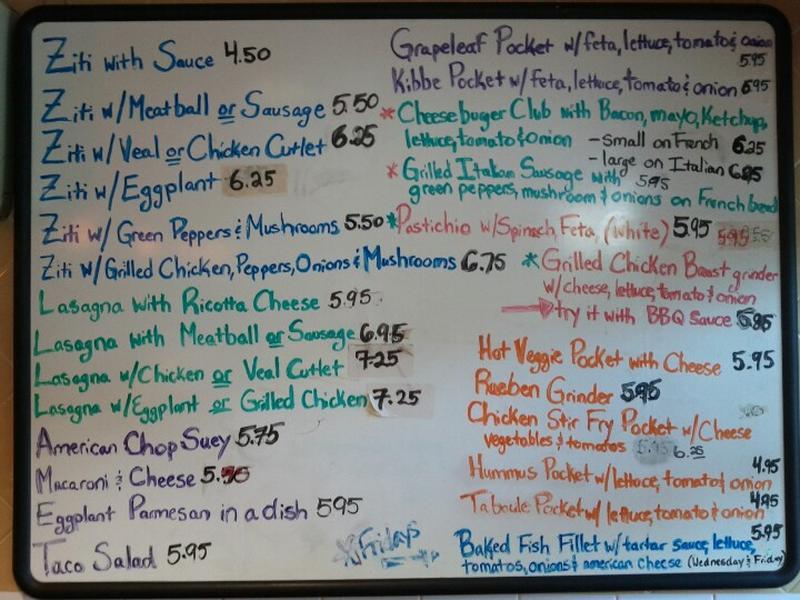 Ziti with Sauce 4.50
Ziti w/Meatball or Sausage 5.50
Ziti w/Veal or Chicken Cutlet 6.25
Ziti w/Eggplant 6.25
Ziti w/ Green Peppers & Mushrooms 5.50
Ziti w/Grilled Chicken, Peppers, Onions & Mushrooms 6.75
Lasagna with Ricotta Cheese 5.95
Lasagna with Meatball or Sausage 6.95
Lasagna w/Chicken or Veal Cutlet 7.25
Lasagna w/Eggplant or Grilled Chicken 7.25
American Chop Suey 5.75
Macaroni & Cheese
Eggplant Parmesan in a dish 595
Taco Salad 5.95
*Fridays
Grapeleaf Pocket w/feta, lettuce, tomato & onion
5.95
Kibbe Pocket w/feta, lettuce, tomato & onion 5.95
* Cheesebuger Club with Bacon, mayo, Ketchup,
lettuce, tomato & onion - small on French 6.25
- large on Italian 6.95
* Grilled Italian Sausage with 5.95
green peppers, mushroom & onions on French bead
* Pastichio w/Spinach, Feta, (White) 5.95
* Grilled Chicken Beast grinder
w/cheese, lettuce, tomato & onion
try it with BBQ Sauce
Hot Veggie Pocket with Cheese 5.95
Rueben Grinder 5.95
Chicken Stir Fry Pocket w/Cheese
vegetables & tomatoes 5.95 6.25
Hummus Pocket w/lettuce, tomato & onion 4.95
Taboule Pocket w/ lettuce, tomato & onion 4.95
Baked Fish Fillet w/tartar sauce, lettuce, 5.95
tomatos, onions & american cheese (Wednesday & Friday)